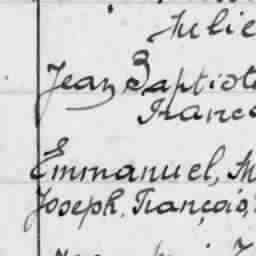 Julie
Jean Baptiste
Franco
Emmanuel,
Joseph, François,